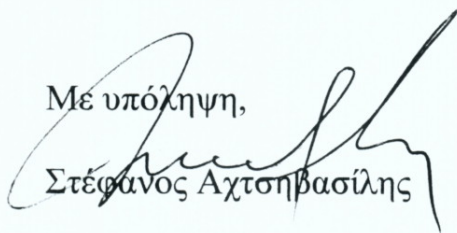 Με υπόληψη,
Στέφανος Αχτσηβασίλης